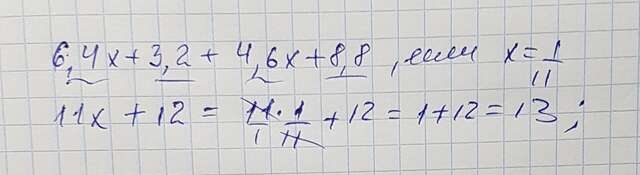 6,4x + 3,2 + 4,6x + 8,8 , если x = 1/11
11x + 12 = 11/1 · 1/11 + 12 = 1 + 12 = 13 ;